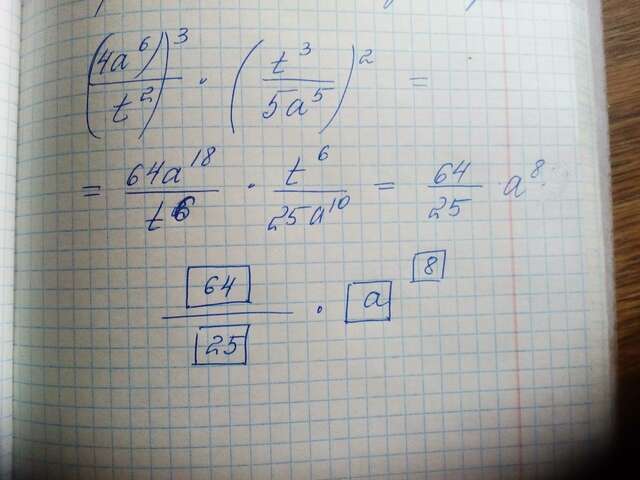 (4a⁶/t²)³ · (t³/5a⁵)² =
= 64a¹⁸/t⁶ · t⁶/25a¹⁰ = 64/25 a⁸
64/25 · a⁸